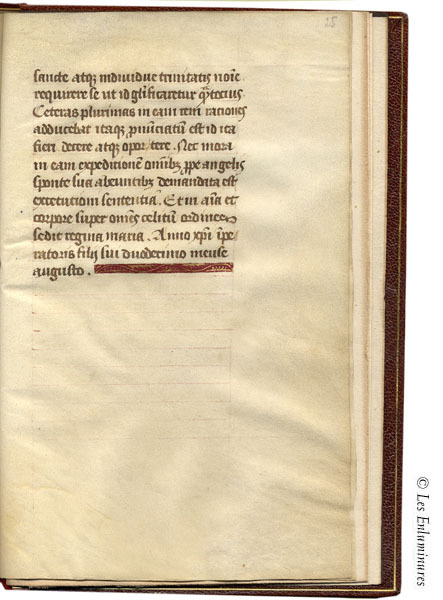 25
sancte atq; individue trinitatis noīe
requirere se ut id glīficaretur
Ceteras plurimas in eam rem rationes
adducebat itaq; est id ita
fieri decere atq; oportere. Nec mora
in eam expeditionē omīb; angelis
sponte sua abeuntib; demandata est
sententia. Et in aīa et
corpore super omēs celitū ordines
sedit regina maria. Anno xp̄i īpe
ratoris filij sui duodecimo mense
augusto.
© Les Enluminures